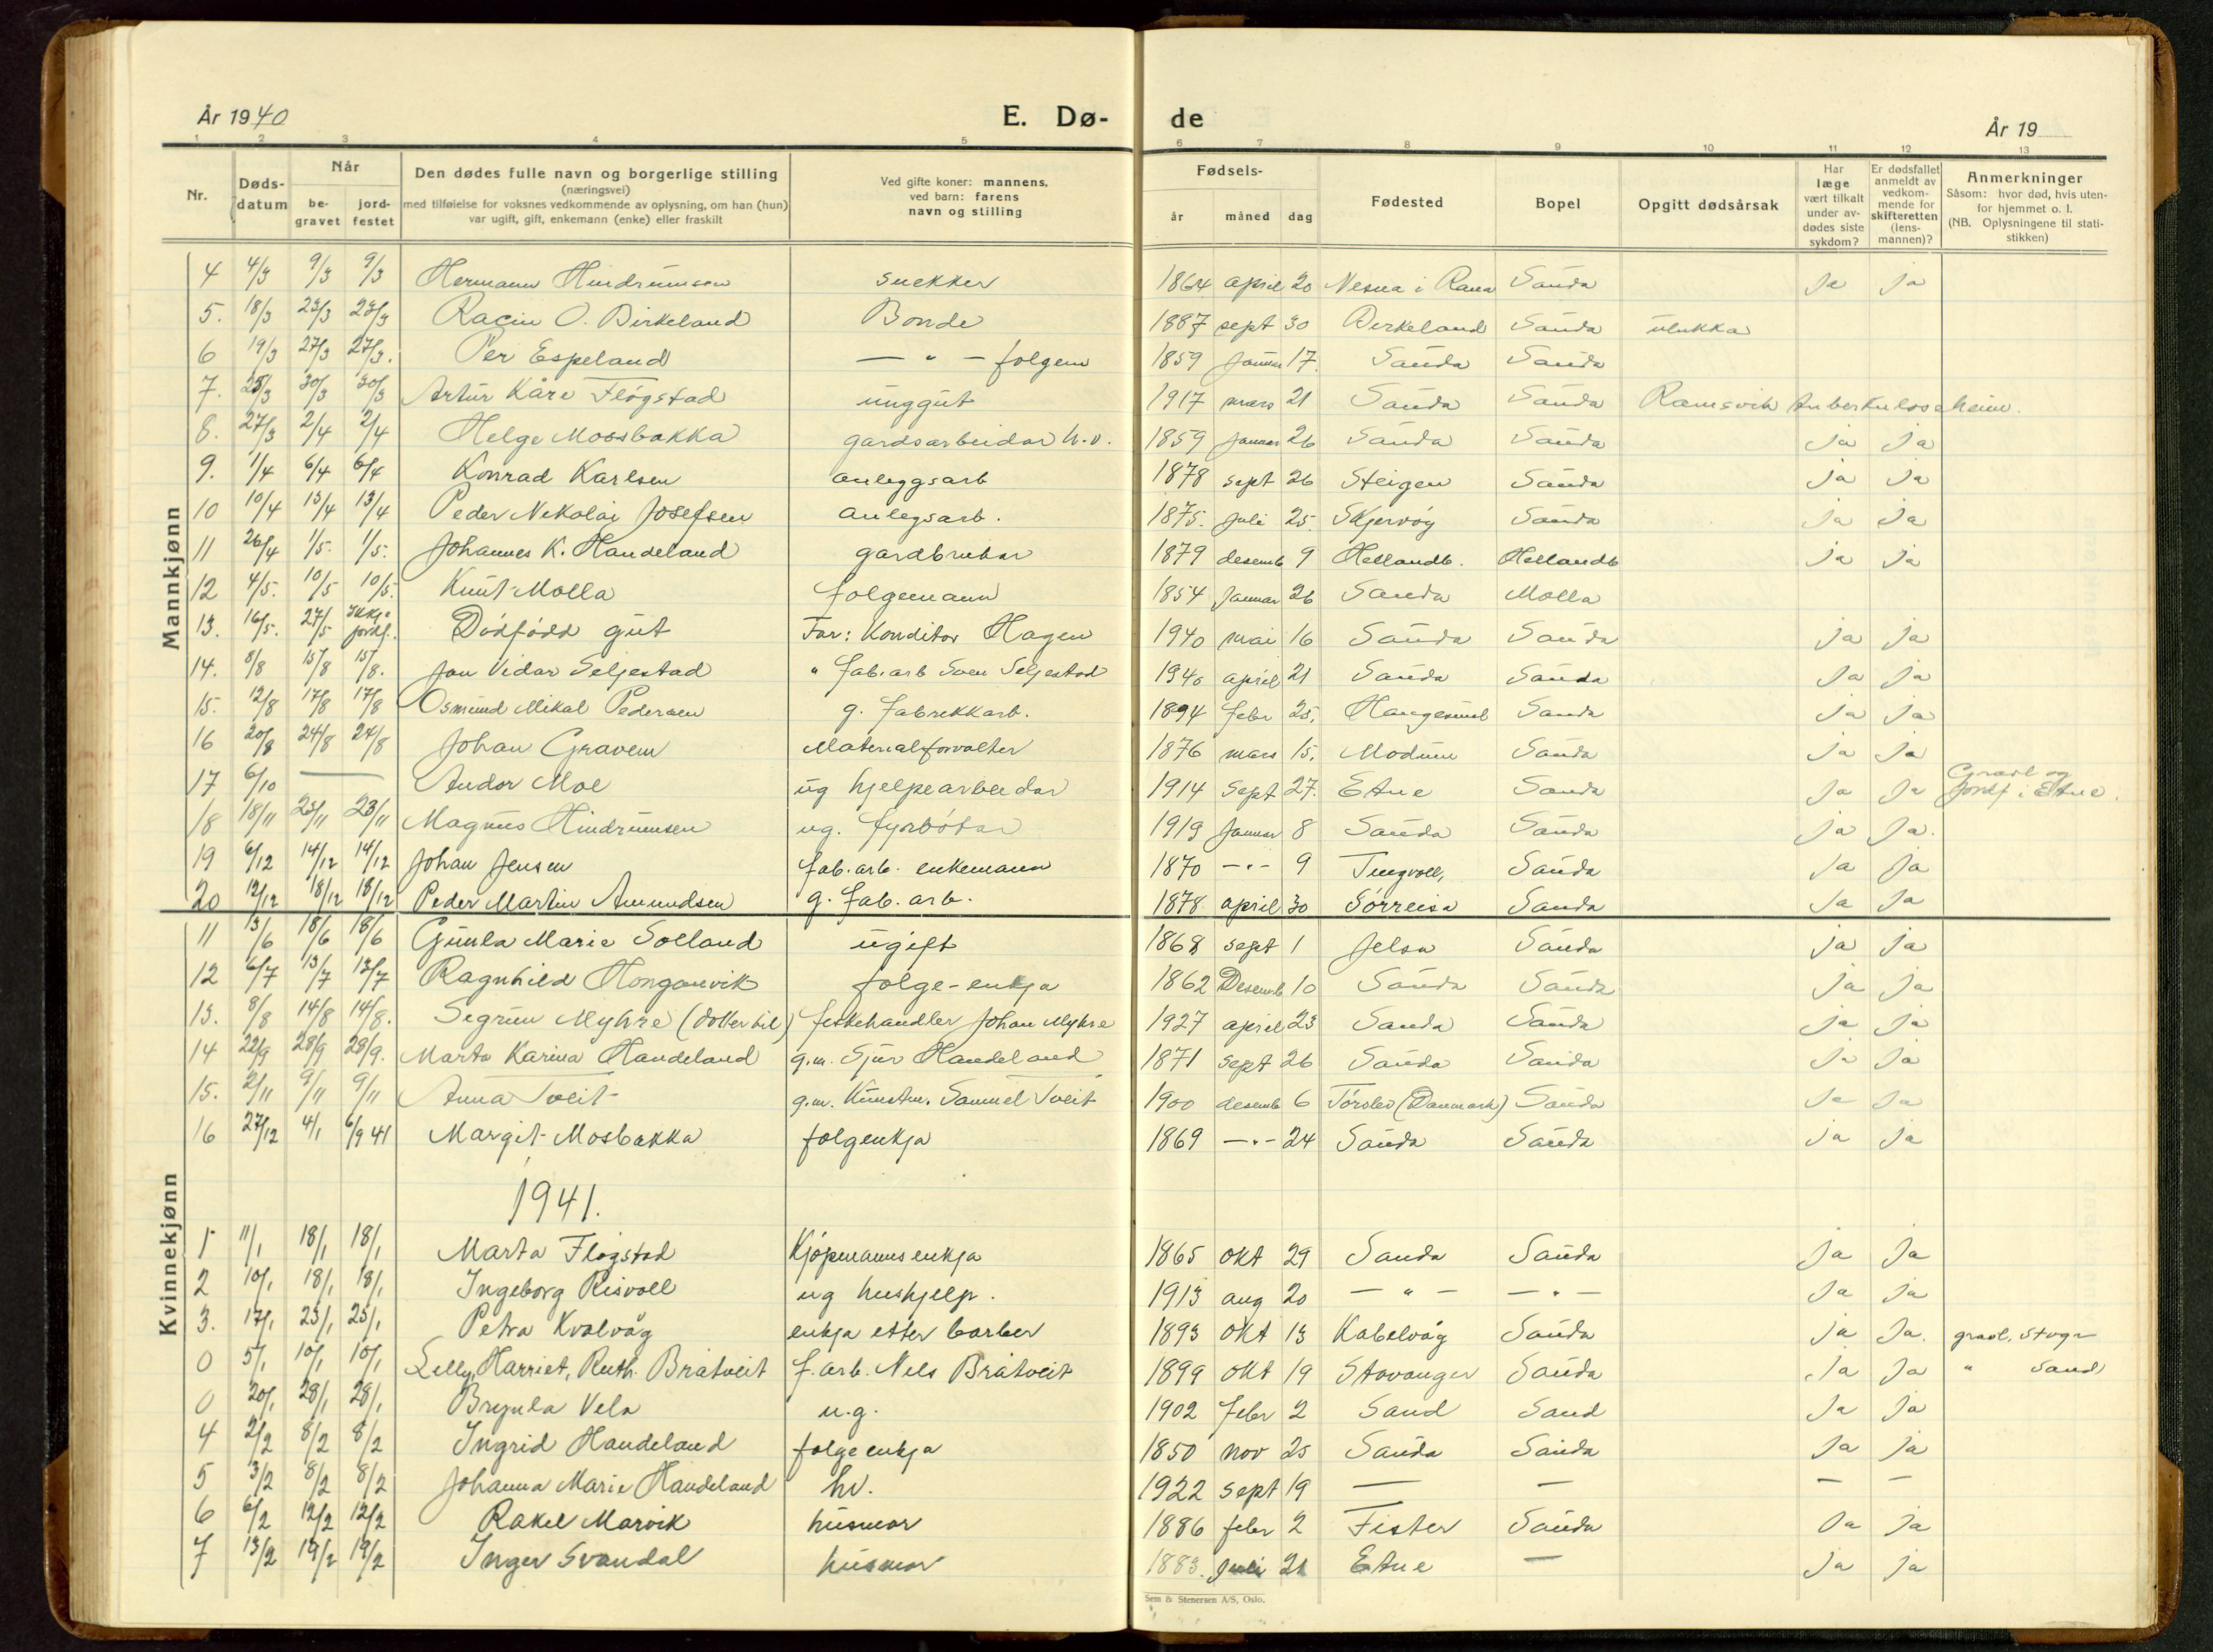 År 1940 E. Dø- de År 19
1 2 3 4 5 6 7 8 9 10 11 12 13
Nr. Døds-datum Når be-gravet jord-festet Den dødes fulle navn og borgerlige stilling (næringsvei) med tilføielse for voksnes vedkommende av oplysning, om han (hun) var ugift, gift, enkemann (enke) eller fraskilt Ved gifte koner: mannens, ved barn: farens navn og stilling Fødsels- år måned dag Fødested Bopel Opgitt dødsårsak Har læge vært tilkalt under av-dødes siste sykdom? Er dødsfallet anmeldt av vedkom-mende for skifteretten (lens-mannen)? Anmerkninger Såsom: hvor død, hvis uten-for hjemmet o. l. (NB. Oplysningene til stati-stikken)
Mannkjønn
4 4/3 9/3 9/3 Hermann Hindrumsen snekker 1864 april 20 Nesna i Rana Sauda Ja Ja
5. 18/3 23/3 23/3 Racin O. Birkeland Bonde 1887 sept 30 Birkeland Sauda ulukka
6 19/3 27/3 27/3. Per Espeland — " — folgem 1859 Januar 17. Sauda Sauda
7. 25/3 30/3 30/3 Artur Kåre Fløgstad unggut 1917 mars 21 Sauda Sauda Ramsvik tuberkuloseheim.
8. 27/3 2/4 2/4 Helge Mosbakka gardsarbeidar h.v. 1859 Januar 26 Sauda Sauda Ja Ja
9. 1/4 6/4 6/4 Konrad Karlsen anleggsarb 1878 sept 26 Steigen Sauda Ja Ja
10 10/4 13/4 13/4 Peder Nikolai Josefsen anlegsarb. 1875. Juli 25. Skjervøy Sauda Ja Ja
11 26/4 1/5. 1/5. Johannes K. Handeland gardbrukar 1879 desemb 9 Hellandb. Hellandb Ja Ja
12 4/5. 10/5 10/5. Knut Molla folgemann 1854 Januar 26 Sauda Molla
13. 16/5. 27/5 Ikkje jordf. Dødfødd gut Far: Konditor Hagen 1940 mai 16 Sauda Sauda Ja Ja
14. 8/8 15/8 15/8. Jan Vidar Seljestad " fab.arb Sven Seljestad 1940 april 21 Sauda Sauda Ja Ja
15. 12/8 17/8 17/8 Osmund Mikal Pedersen g. fabrikkarb. 1894 febr 25. Haugesund Sauda Ja Ja
16 20/8 24/8 24/8 Johan Gravem Materialforvalter 1876 mars 15. Modum Sauda Ja Ja
17 6/10 — Andor Moe ug hjelpearbeidar 1914 Sept 27. Etne Sauda Ja Ja Gravl og jordf i Etne.
18 18/11 23/11 23/11 Magnus Hindrumsen ug. fyrbøtar 1919 Januar 8 Sauda Sauda Ja Ja.
19 6/12 14/12 14/12 Johan Jensen fab.arb. enkemann 1870 — " — 9 Tingvoll, Sauda Ja Ja
20 12/12 18/12 18/12 Peder Martin Amundsen g. fab. arb. 1878 april 30 Sørreisa Sauda Ja Ja
Kvinnekjønn
11 13/6 18/6 18/6 Gunla Marie Solland ugift 1868 sept 1 Jelsa Sauda Ja Ja
12 6/7 13/7 13/7 Ragnhild Honganvik folge-enkja 1862 Desemb 10 Sauda Sauda Ja Ja
13. 8/8 14/8 14/8. Sigrun Myhre (dotter til) fiskehandler Johan Myhre 1927 april 23 Sauda Sauda Ja Ja
14 22/9 28/9 28/9. Marta Karina Handeland g.m. Sjur Handeland 1871 sept 26 Sauda Sauda Ja Ja
15. 2/11 9/11 9/11 Anna Tveit g.m. Kunstm. Samuel Tveit 1900 desemb 6 Tørslev (Danmark) Sauda Ja Ja
16 27/12 4/1 6/9 41 Margit Mosbakka folgenkja 1869 — " — 24 Sauda Sauda Ja Ja
1941.
1 11/1 18/1 18/1 Marta Fløgstad Kjøpmannsenkja 1865 okt 29 Sauda Sauda Ja Ja
2 10/1 18/1 18/1 Ingeborg Risvoll ug hushjelp. 1913 aug 20 — " — — " — Ja Ja
3. 17/1 25/1 25/1 Petra Kvalvåg enkja etter barber 1893 okt 13 Kabelvåg Sauda Ja Ja. gravl. Stvgr
0 5/1 10/1 10/1 Lelly, Harriet, Ruth. Bråtveit f. arb. Nils Bråtveit 1899 okt 19 Stavanger Sauda Ja Ja " Sand
0 20/1 28/1 28/1 Brynla Vela u.g. 1902 febr 2 Sand Sand Ja Ja
4 2/2 8/2 8/2 Ingrid Handeland folgeenkja 1850 nov 25 Sauda Sauda Ja Ja
5 3/2 8/2 8/2 Johanna Marie Handeland hv. 1922 sept 19 — — — —
6 6/2 12/2 12/2 Rakel Marvik husmor 1886 febr 2 Fister Sauda Ja Ja
7 13/2 19/2 19/2 Inger Svandal husmor 1883. Juli 21 Etne — Ja Ja
Sem & Stenersen A/S, Oslo.